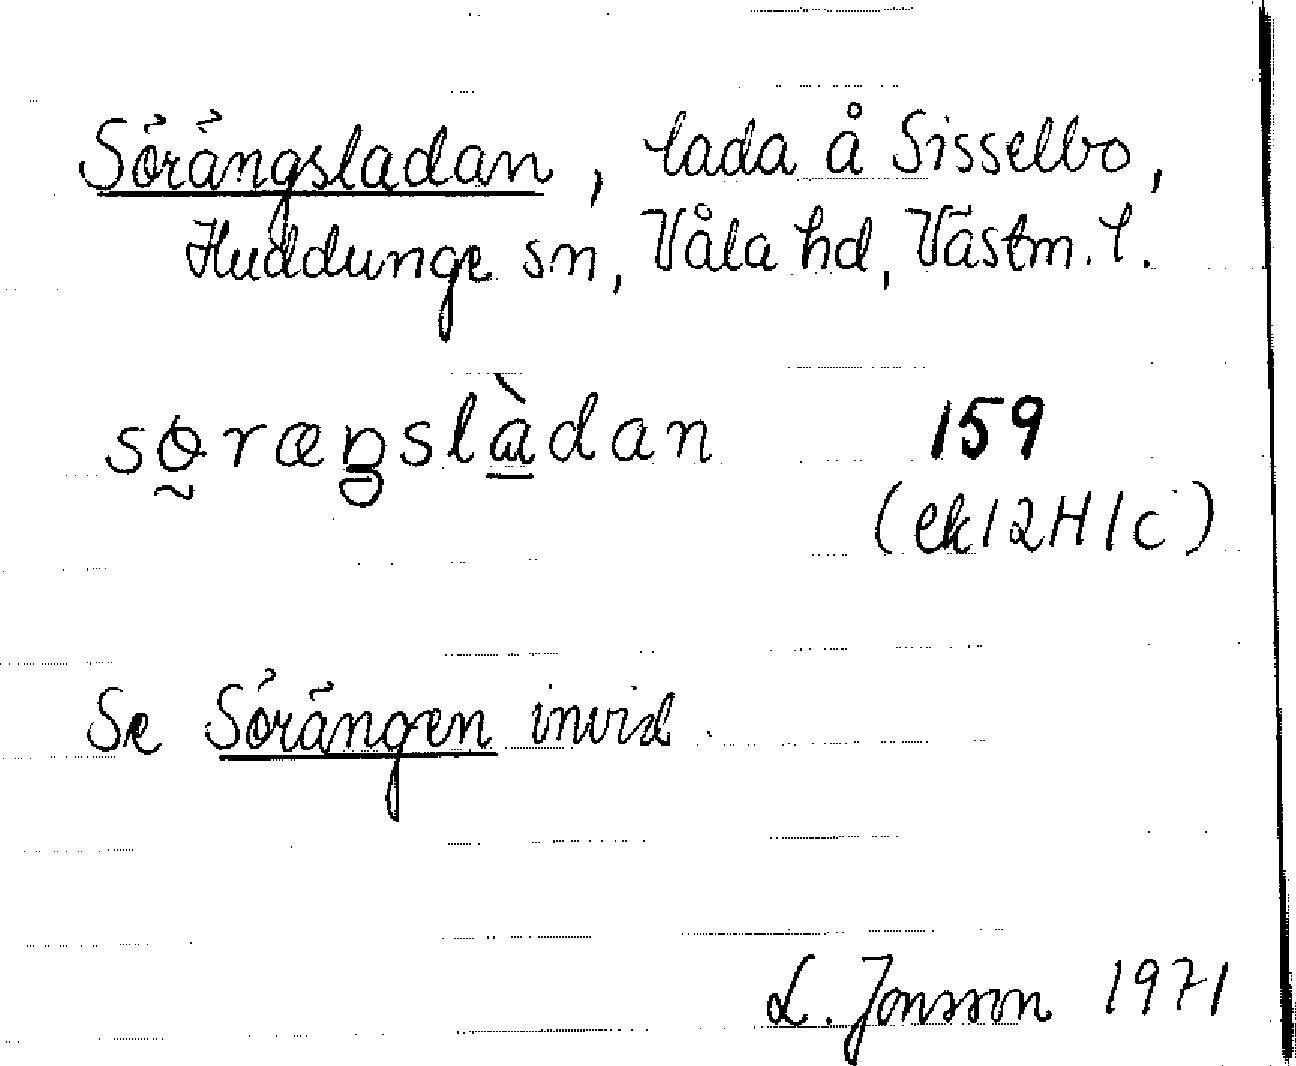 Sörängsladan, lada å Sisselbo,
Huddunge sn, Våla hd, Västm. l.
søræŋslàdan 159
(ek 12H1c)
Se Sörängen invid.
L. Jonsson 1971